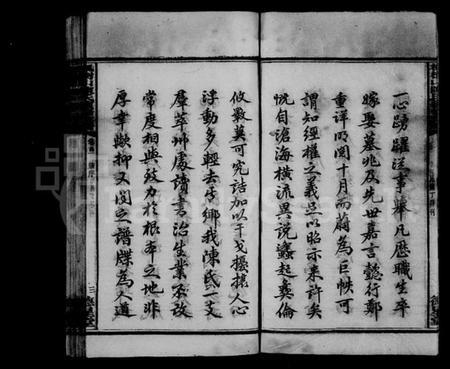 一心踴躍從事舉凡歷職生卒
嫁娶墓兆及先世嘉言懿行鄭
重詳明閱十月而蕆為巨帙可
謂知經權之義足以昭示來許矣
慨自滄海橫流異說蠭起奠倫
攸斁莫可究詰加以干戈擾攘人心
浮動多輕去其鄉我陳氏一支
羣萃州處讀書治生業不改
常度相與致力於根本之地非
厚幸歟抑又聞之譜牒為人道
三